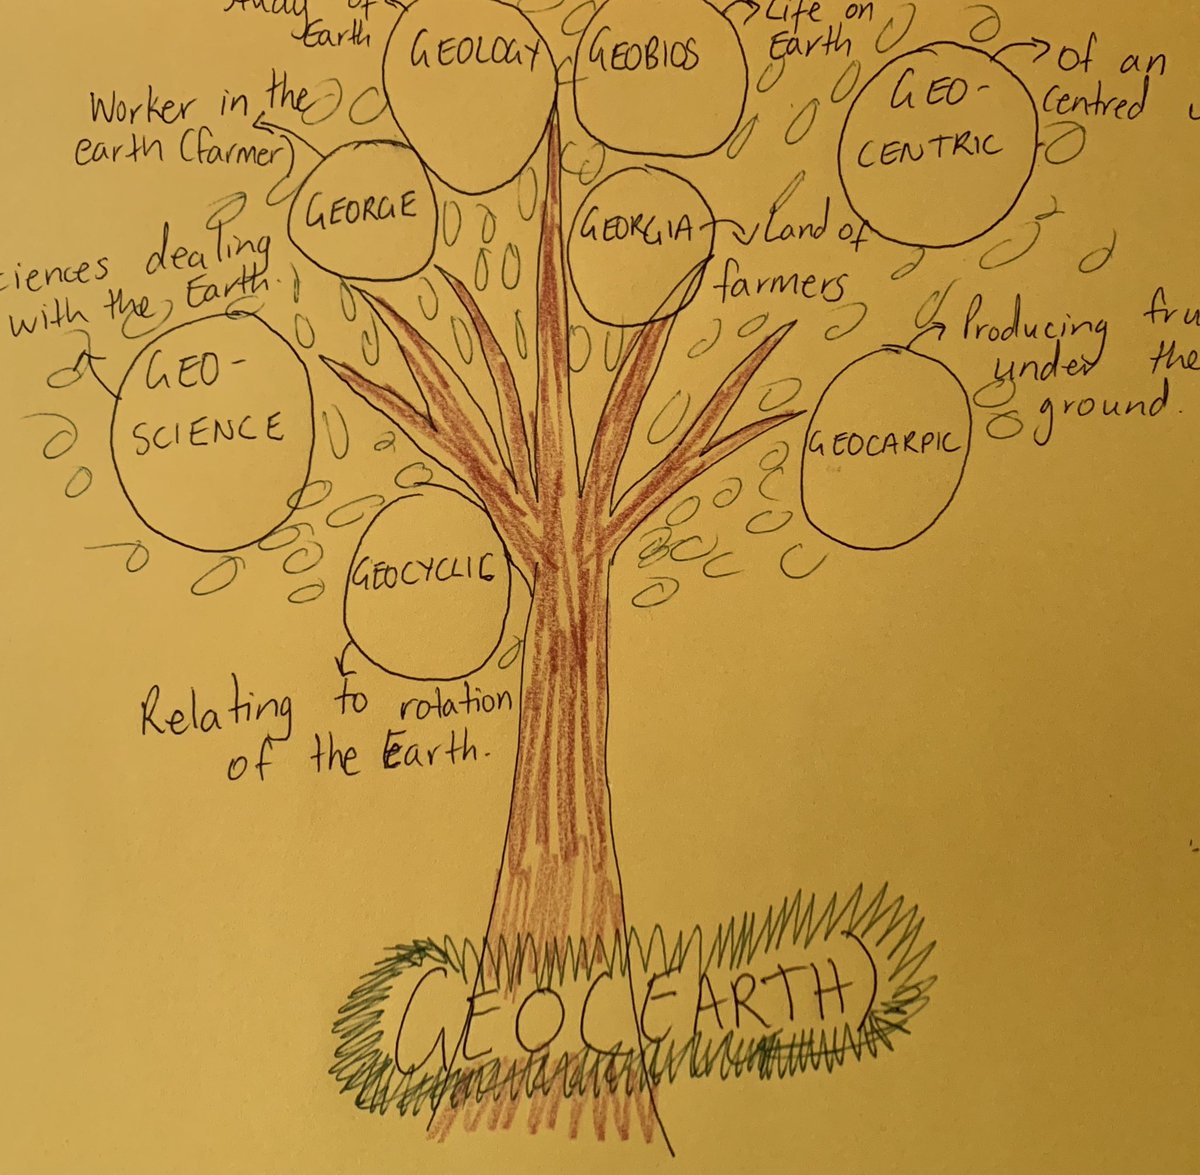 Study of
Earth
GEOLOGY
GEOBIOS
Life on
Earth
GEO-
CENTRIC
of an
centred
Worker in the
earth (farmer)
GEORGE
GEORGIA
Land of
farmers
ciences dealing
with the Earth.
GEO-
SCIENCE
Producing fru
under the
ground.
GEOCARPIC
GEOCYCLIC
Relating to rotation
of the Earth.
GEO (EARTH)